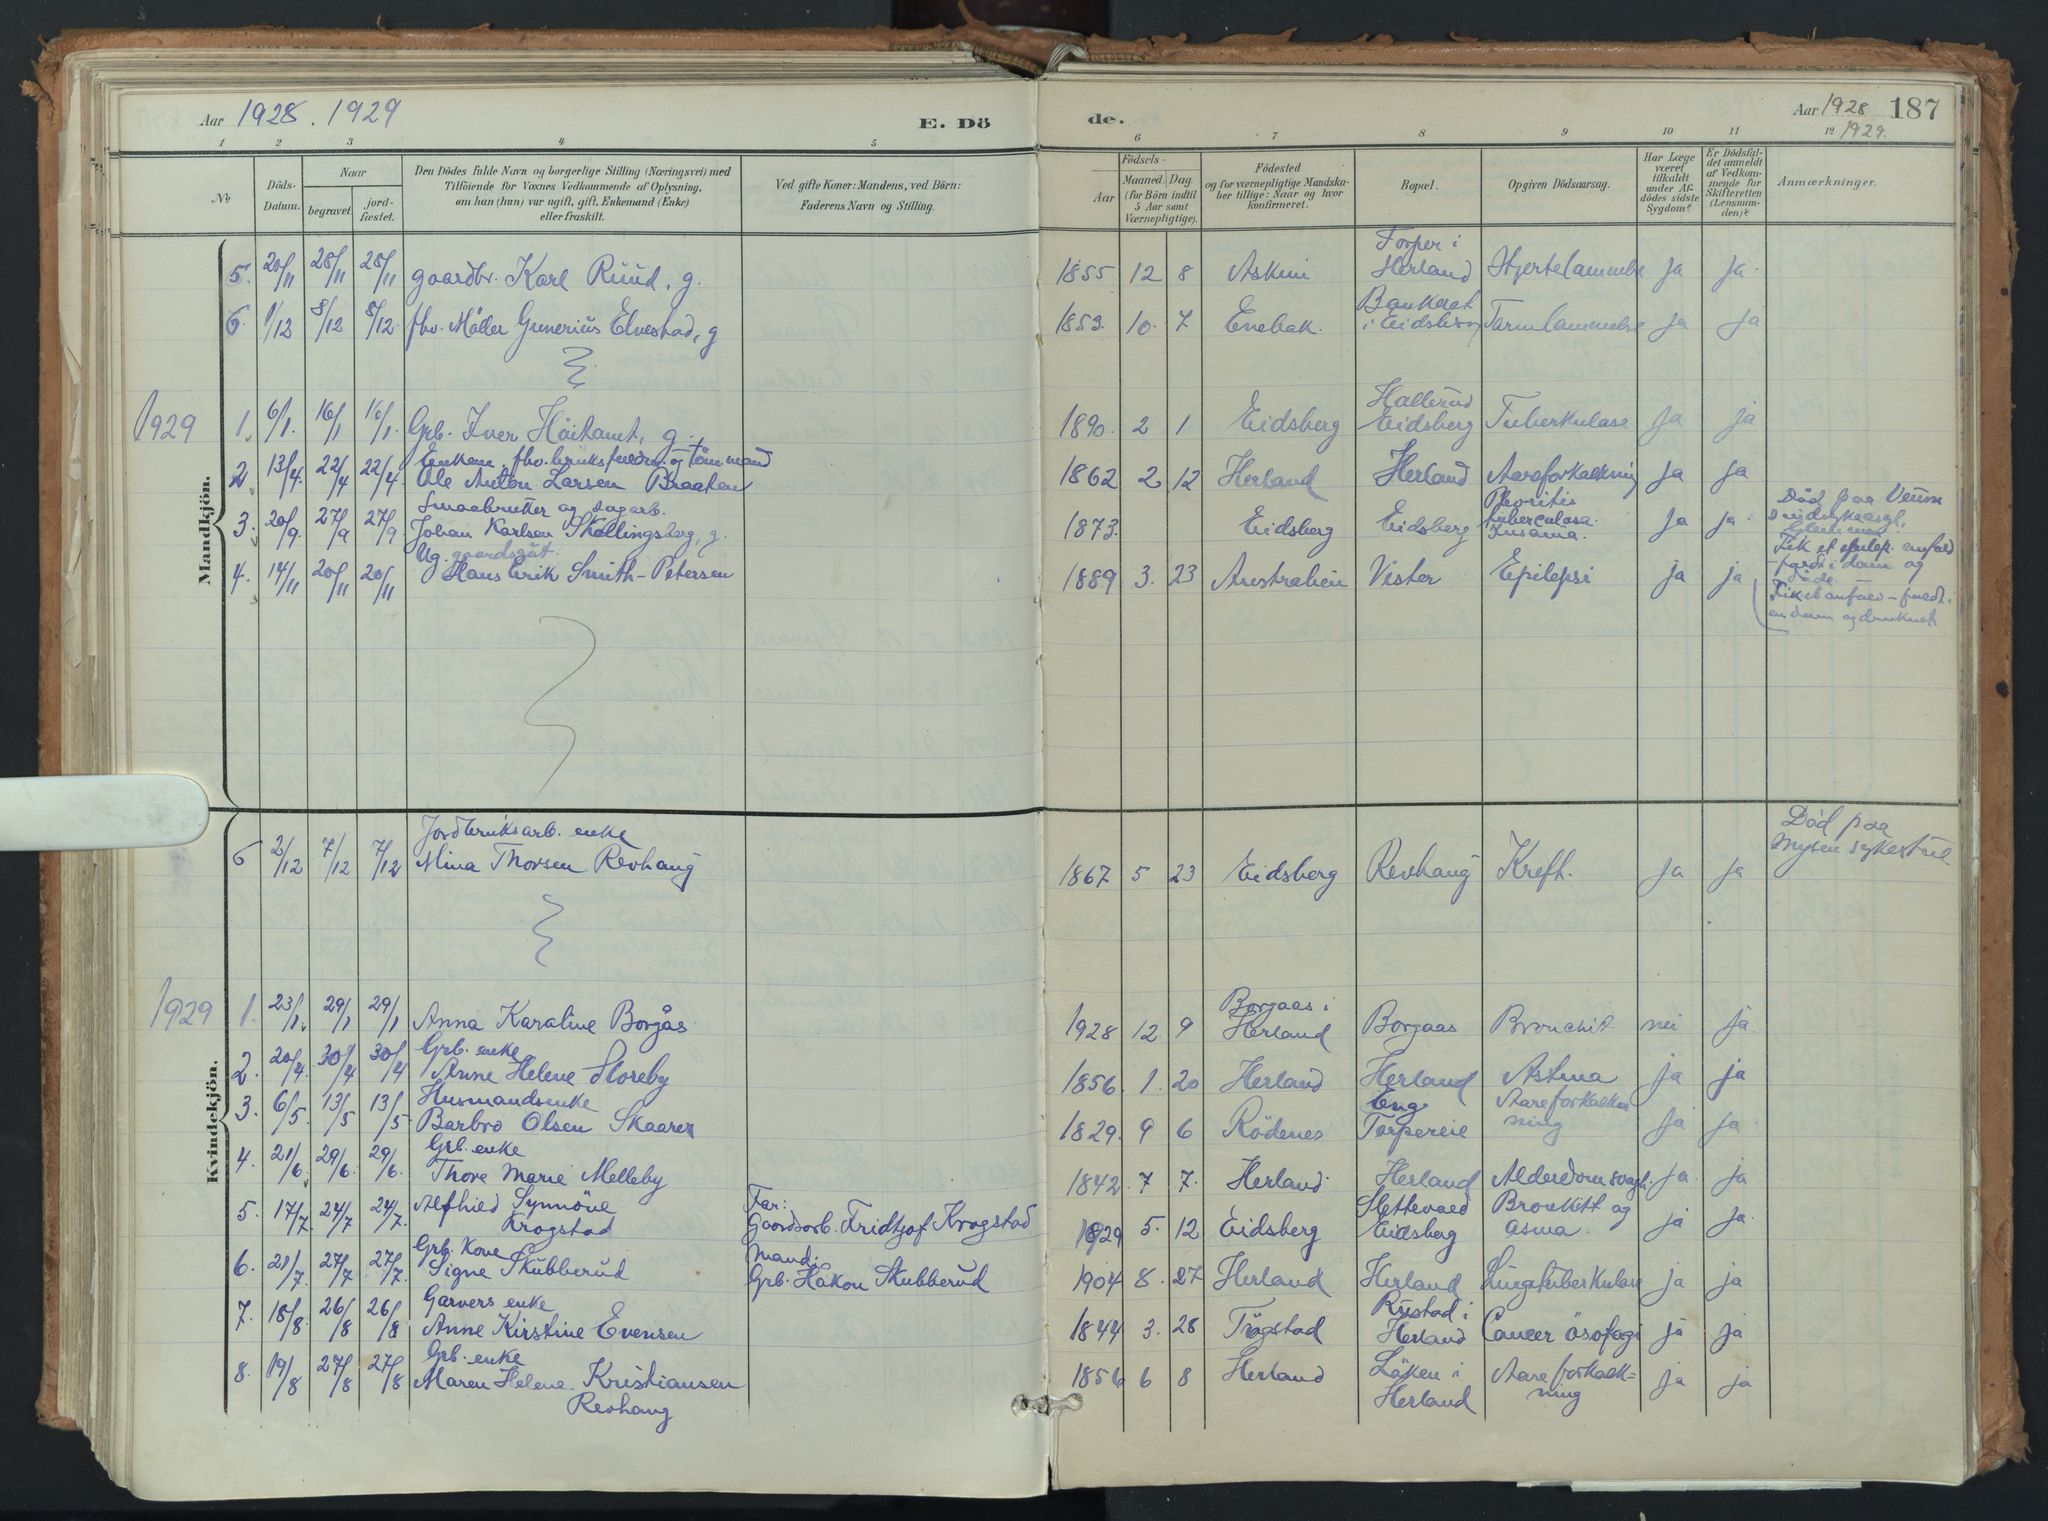 Aar 1928. 1929 E. Dö
1 2 3 4 5
No Döds-Datum. Naar begravet. jord-fæstet. Den Dödes fulde Navn og borgerlige Stilling (Næringsvei) med Tilföiende for Voxnes Vedkommende af Oplysning, om han (hun) var ugift, gift, Enkemand (Enke) eller fraskilt. Ved gifte Koner: Mandens, ved Börn: Faderens Navn og Stilling.
Mandkjön.
5. 20/11 28/11 28/11 gaardbr. Karl Ruud, g.
6. 1/12 8/12 8/12 fhv. Möller Gunerius Elvestad, g
1929 1. 6/1. 16/1 16/1. Grb. Iver Höitomt, g.
2 13/4. 22/4 22/4
Ole Anton Larsen Braaten
Smaabruker og dagarb.
3. 20/9. 27/9 27/9 Johan Karlsen Skollingsberg, g.
Ug. gaardsgut
4. 14/11 20/11 20/11 Hans Erik Smith-Petersen
Kvindekjön.
Jordbruksarb. enke
6 2/12 7/12 7/12 Mina Thorsen Revhaug
1929 1. 23/1. 29/1 29/1 Anna Karaline Borgås
Grb. enke
2. 20/4. 30/4 30/4 Anne Helene Storeby
Husmandsenke
3. 6/5 13/5 13/5 Barbro Olsen Skaaren
Grb. enke
4. 21/6 29/6. 29/6. Thore Marie Melleby
5. 17/7 24/7 24/7. Alfhild Synnöve Krogstad Far: Gaardsarb. Fridtjof Krogstad
Grb. Kone Mand:
6. 21/7. 27/7 27/7. Signe Skubberud Grb. Håkon Skubberud
Garvers enke
7. 18/8. 26/8 26/8 Anne Kirstine Evensen
Grb. enke
8. 19/8 27/8 27/8 Maren Helene Kristiansen
Revhaug
de. Aar 1928 187
1929.
6 7 8 9 10 11 12
Födsels-Aar Maaned. Dag. (for Börn indtil 5 Aar samt Værnepligtige). Födested og for værnepligtige Mandskaber tillige: Naar og hvor konfirmeret. Bopæl. Opgiven Dödsaarsag. Har Læge været tilkaldt under Afdödes sidste Sygdom? Er Dödsfaldet anmeldt af Vedkommende for Skifteretten (Lensmanden)? Anmærkninger.
Torper i
1855 12 8 Askim Herland Hjertelammelse ja ja
1853. 10. 7 Enebak. i Eidsberg Tarmlammelse ja ja
Hallerud
1890. 2 1 Eidsberg Eidsberg Tuberkulose ja ja
1862 2 12 Herland Herland Aareforkalkning ja ja
1873. Eidsberg Eidsberg Pleuritis tuberculosa. ja ja Död paa Veum
1889 3. 23 Australien Vister Epilepsi ja ja
Fik et epilep. anfald
Död paa
Mysen sykestue
1867 5 23 Eidsberg Revhaug Kreft. ja ja
Borgaas i
1928 12 9 Herland Borgaas Bronchit nei ja
1856. 1. 20 Herland Herland Astma ja ja
Eng
1829. 9 6 Rödenes Torpereie Aareforkalkning ja ja
1842. 7 7. Herland Herland Alderdomsvagh. ja ja
Slettevold Bronkitt og
1929 5. 12 Eidsberg Eidsberg asma. ja ja
1904 8. 27 Herland Herland Lungetuberkulose ja ja
Rustad i
1844 3. 28 Trögstad Herland Cancer ösofagi ja ja
1856 6 8 Herland Löken i Herland Aareforkalkning ja ja